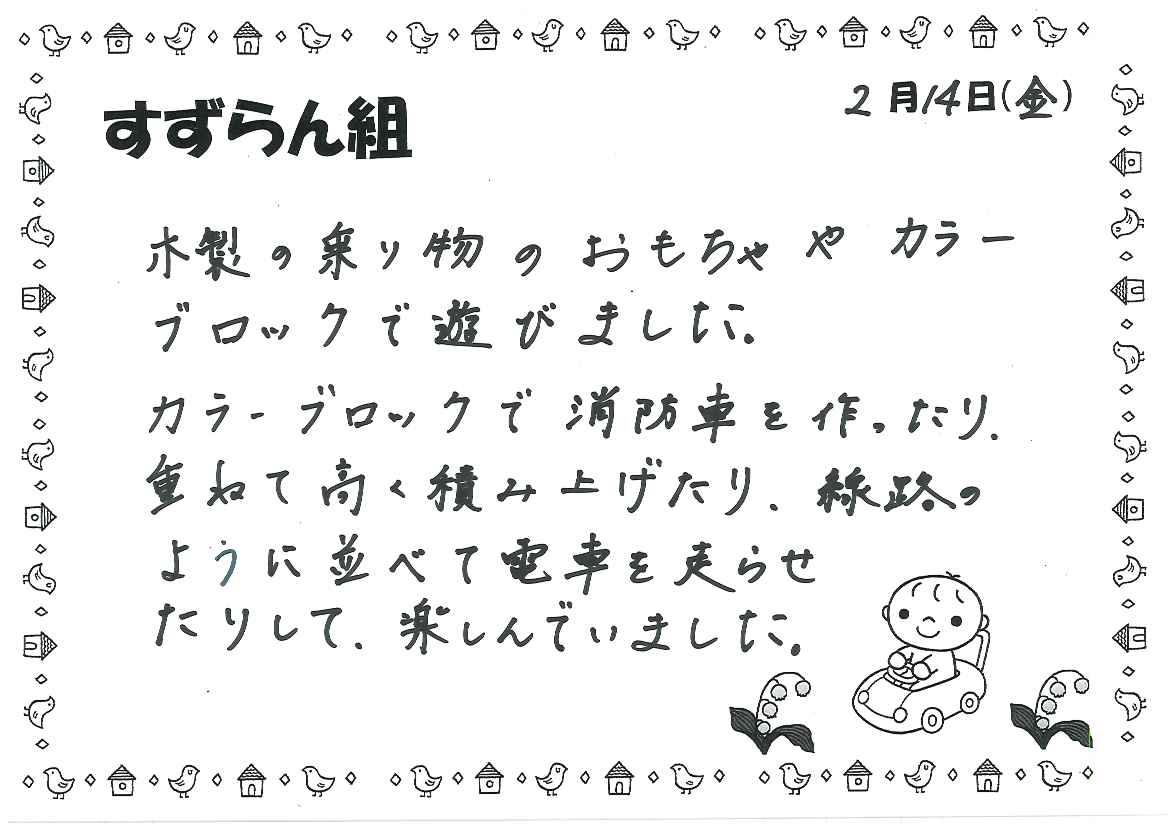 すずらん組
2月14日(金)
木製の乗り物のおもちゃやカラー
ブロックで遊びました。
カラーブロックで消防車を作ったり、
重ねて高く積み上げたり、線路の
ように並べて電車を走らせ
たりして、楽しんでいました。